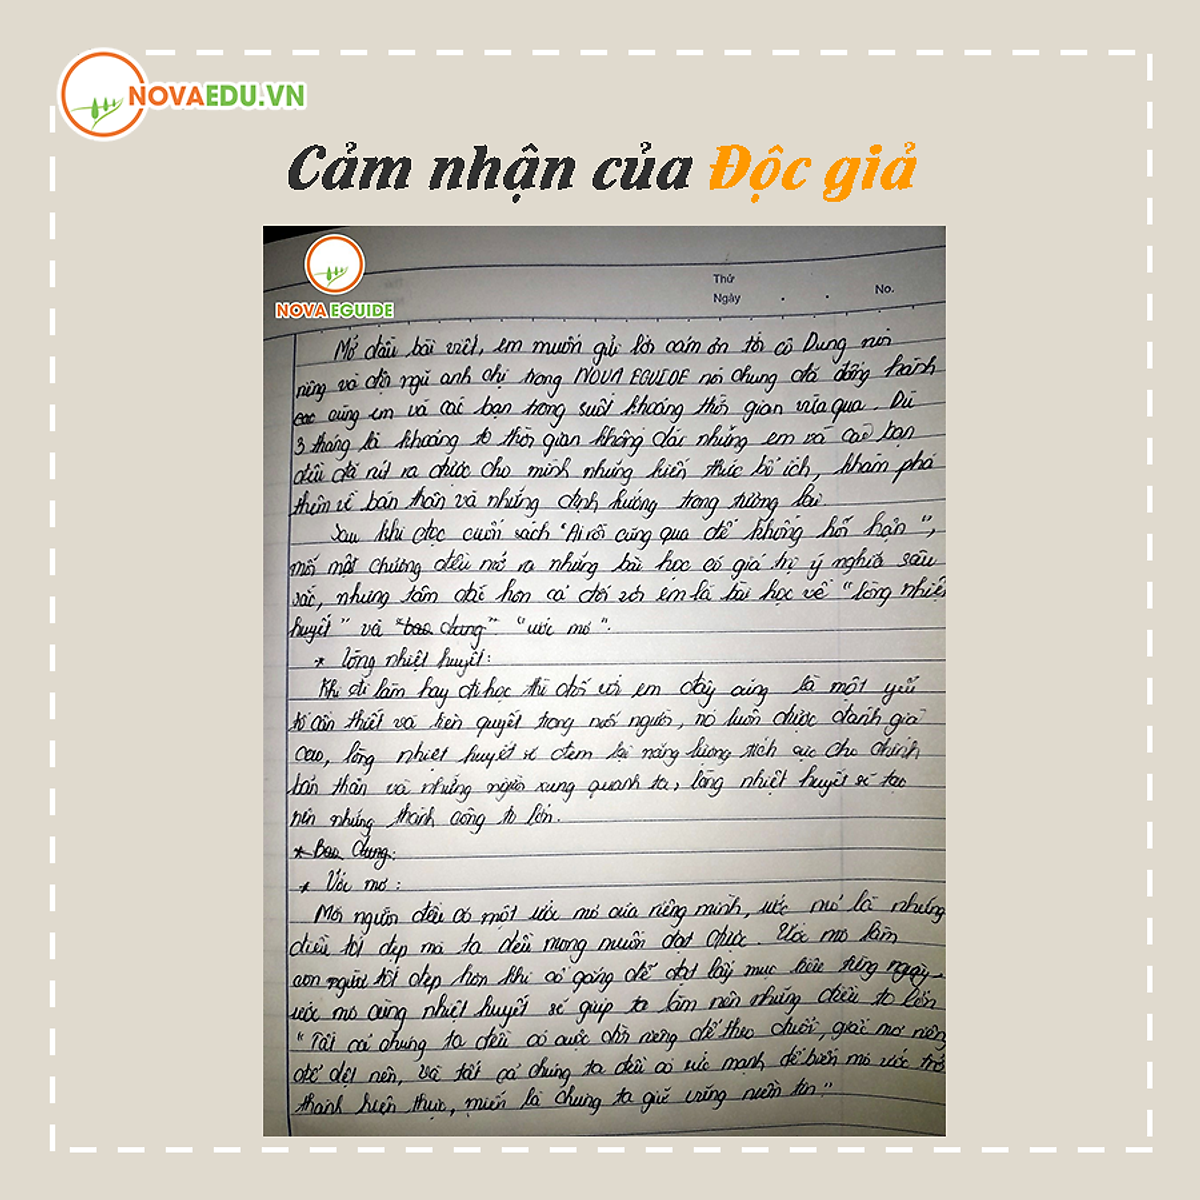 NOVAEDU.VN
Cảm nhận của Độc giả
NOVA EGUIDE
Thứ
Ngày . . No.
Mở đầu bài viết, em muốn gửi lời cảm ơn tới cô Dung nói
riêng và đội ngũ anh chị trong NOVA EGUIDE nói chung đã đồng hành
các cùng em và các bạn trong suốt khoảng thời gian vừa qua. Dù
3 tháng là khoảng tg thời gian không dài nhưng em và các bạn
đều đã rút ra được cho mình những kiến thức bổ ích, khám phá
thêm về bản thân và những định hướng trong tương lai
Sau khi đọc cuốn sách "Ai rồi cũng qua để không hối hận",
mỗi một chương đều mở ra những bài học có giá trị ý nghĩa sâu
sắc, nhưng tâm đắc hơn cả đối với em là bài học về "lòng nhiệt
huyết" và "bao dung". "ước mơ".
* Lòng nhiệt huyết:
Khi đi làm hay đi học thì đối với em đây cũng là một yếu
tố cần thiết và tiên quyết trong mỗi người, nó luôn được đánh giá
cao, lòng nhiệt huyết sẽ đem lại năng lượng tích cực cho chính
bản thân và những người xung quanh ta, lòng nhiệt huyết sẽ tạo
nên những thành công to lớn.
* Bao dung:
* Ước mơ :
Mỗi người đều có một ước mơ của riêng mình, ước mơ là những
điều tốt đẹp mà ta đều mong muốn đạt được. Ước mơ làm
con người tốt đẹp hơn khi cố gắng để đạt lấy mục tiêu từng ngày,
ước mơ cùng nhiệt huyết sẽ giúp ta làm nên những điều to lớn
"Tất cả chúng ta đều có cuộc đời riêng để theo đuổi, giấc mơ riêng
để dệt nên, và tất cả chúng ta đều có sức mạnh để biến mơ ước trở
thành hiện thực, miễn là chúng ta giữ vững niềm tin"